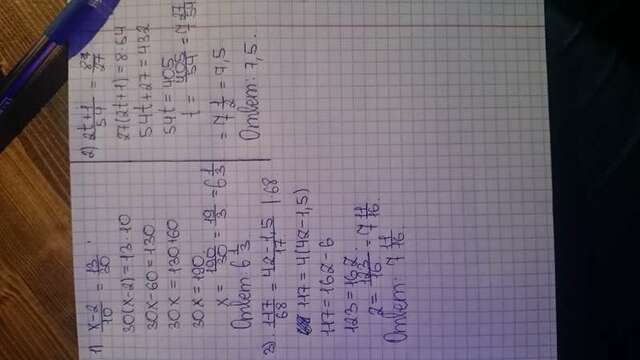 1) x-2/10 = 13/30
30(x-2)=13·10
30x-60=130
30x=130+60
30x=190
x=190/30=19/3=6 1/3
Ответ: 6 1/3
2) 2t+1/54 = 8/27
27(2t+1)=8·54
54t+27=432
54t=405
t=405/54=7 27/54
=7 1/2=7,5
Ответ: 7,5.
3). 117/68 = 4z-1,5/17 |·68
117=4(4z-1,5)
117=16z-6
123=16z.
z=123/16=7 11/16.
Ответ: 7 11/16.